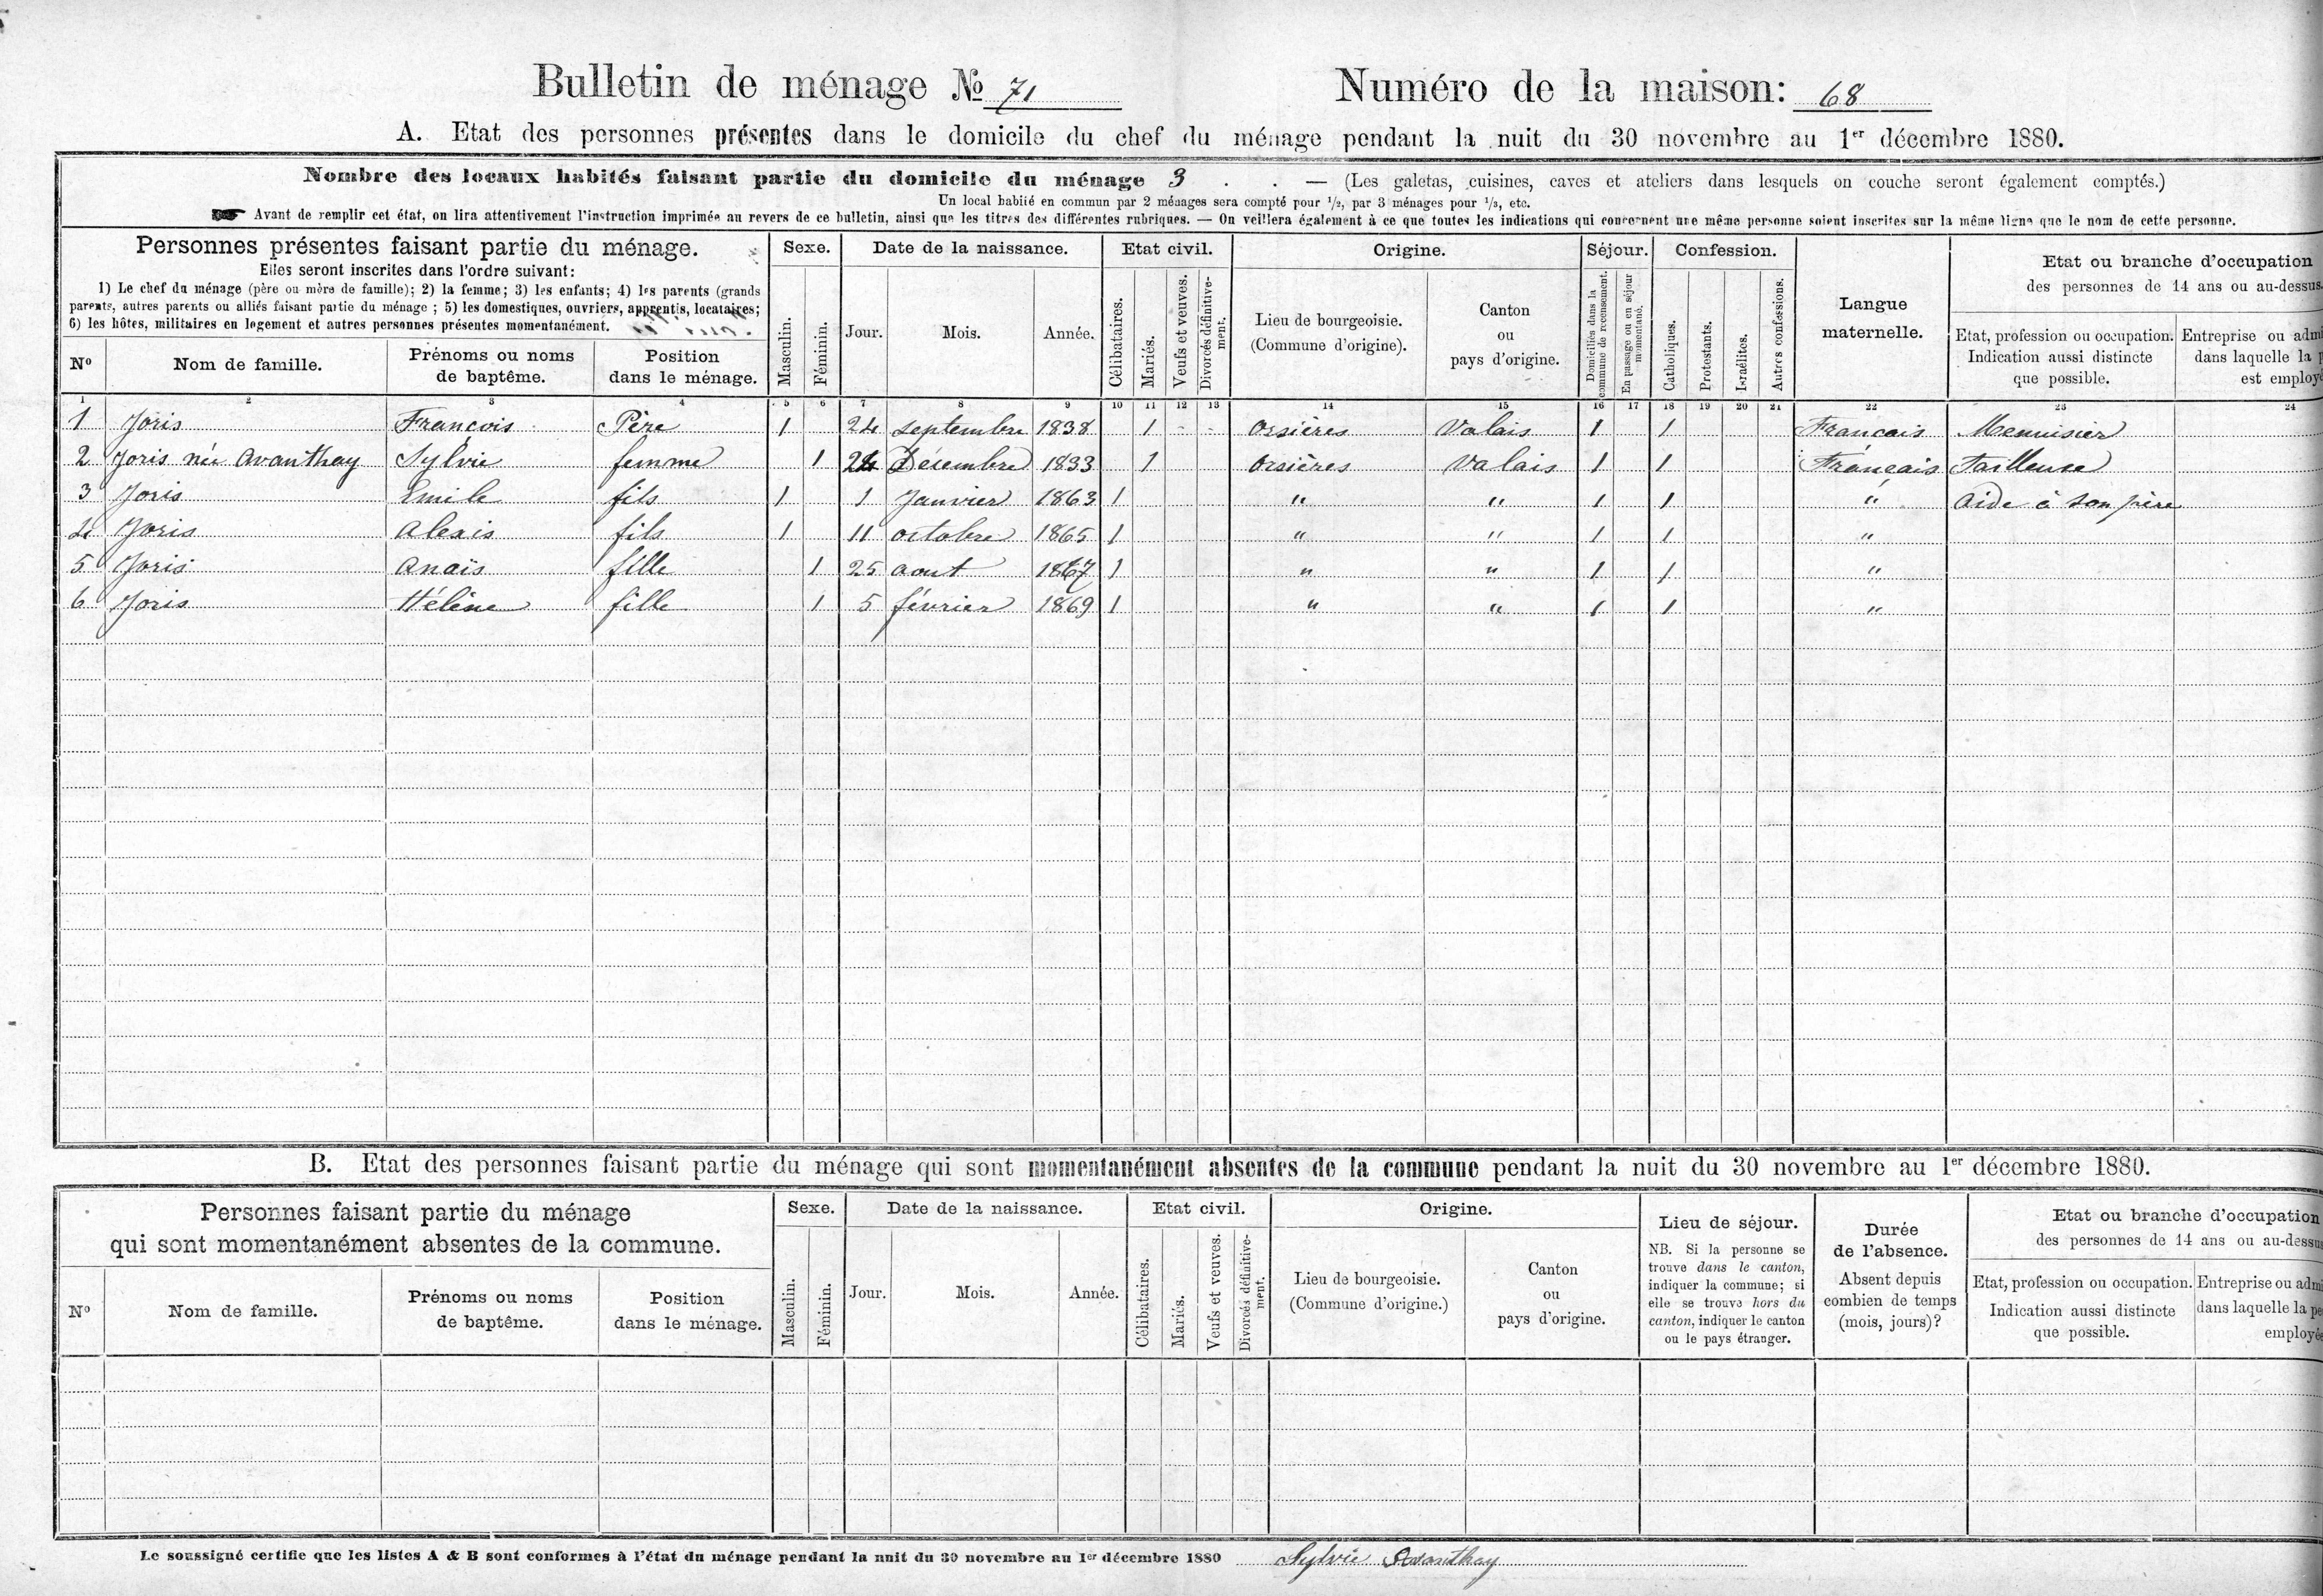 Bulletin de ménage № 71 Numéro de la maison: 68
A. Etat des personnes présentes dans le domicile du chef du ménage pendant la nuit du 30 novembre au 1er décembre 1880.
Nombre des locaux habités faisant partie du domicile du ménage 3 . . — (Les galetas, cuisines, caves et ateliers dans lesquels on couche seront également comptés.)
Un local habité en commun par 2 ménages sera compté pour 1/2, par 3 ménages pour 1/3, etc.
Avant de remplir cet état, on lira attentivement l'instruction imprimée au revers de ce bulletin, ainsi que les titres des différentes rubriques. — On veillera également à ce que toutes les indications qui concernent une même personne soient inscrites sur la même ligne que le nom de cette personne.
Personnes présentes faisant partie du ménage.
Elles seront inscrites dans l'ordre suivant:
1) Le chef du ménage (père ou mère de famille); 2) la femme; 3) les enfants; 4) les parents (grands
parents, autres parents ou alliés faisant partie du ménage ; 5) les domestiques, ouvriers, apprentis, locataires;
6) les hôtes, militaires en logement et autres personnes présentes momentanément.
Nº
Nom de famille.
Prénoms ou noms
de baptême.
Position
dans le ménage.
Sexe.
Masculin.
Féminin.
Date de la naissance.
Jour.
Mois.
Année.
Etat civil.
Célibataires.
Mariés.
Veufs et veuves.
Divorcés définitive-
ment.
Origine.
Lieu de bourgeoisie.
(Commune d'origine).
Canton
ou
pays d'origine.
Séjour.
Domiciliés dans la
commune de recensement.
En passage ou en séjour
momentané.
Confession.
Catholiques.
Protestants.
Israélites.
Autres confessions.
Langue
maternelle.
Etat ou branche d'occupation
des personnes de 14 ans ou au-dessus.
Etat, profession ou occupation.
Indication aussi distincte
que possible.
Entreprise ou adm
dans laquelle la p
est employé
1 2 3 4 5 6 7 8 9 10 11 12 13 14 15 16 17 18 19 20 21 22 23 24
1 Joris Francois Père 1 24 septembre 1838 1 - - Orsières Valais 1 1 Francais Menuisier
2 Joris née Avanthey Sylvie femme 1 24 Décembre 1833 1 Orsières Valais 1 1 Français Tailleuse
3 Joris Emile fils 1 1 Janvier 1863 1 " " 1 1 " Aide à son père
4 Joris Alexis fils 1 11 octobre 1865 1 " " 1 1 "
5 Joris Anaïs fille 1 25 aout 1867 1 " " 1 1 "
6 Joris Hélène fille 1 5 février 1869 1 " " 1 1 "
B. Etat des personnes faisant partie du ménage qui sont momentanément absentes de la commune pendant la nuit du 30 novembre au 1er décembre 1880.
Personnes faisant partie du ménage
qui sont momentanément absentes de la commune.
Nº
Nom de famille.
Prénoms ou noms
de baptême.
Position
dans le ménage.
Sexe.
Masculin.
Féminin.
Date de la naissance.
Jour.
Mois.
Année.
Etat civil.
Célibataires.
Mariés.
Veufs et veuves.
Divorcés définitive-
ment.
Origine.
Lieu de bourgeoisie.
(Commune d'origine.)
Canton
ou
pays d'origine.
Lieu de séjour.
NB. Si la personne se
trouve dans le canton,
indiquer la commune; si
elle se trouve hors du
canton, indiquer le canton
ou le pays étranger.
Durée
de l'absence.
Absent depuis
combien de temps
(mois, jours)?
Etat ou branche d'occupation
des personnes de 14 ans ou au-dessus
Etat, profession ou occupation.
Indication aussi distincte
que possible.
Entreprise ou adm
dans laquelle la pe
employée
Le soussigné certifie que les listes A & B sont conformes à l'état du ménage pendant la nuit du 30 novembre au 1er décembre 1880 Sylvie Avanthey